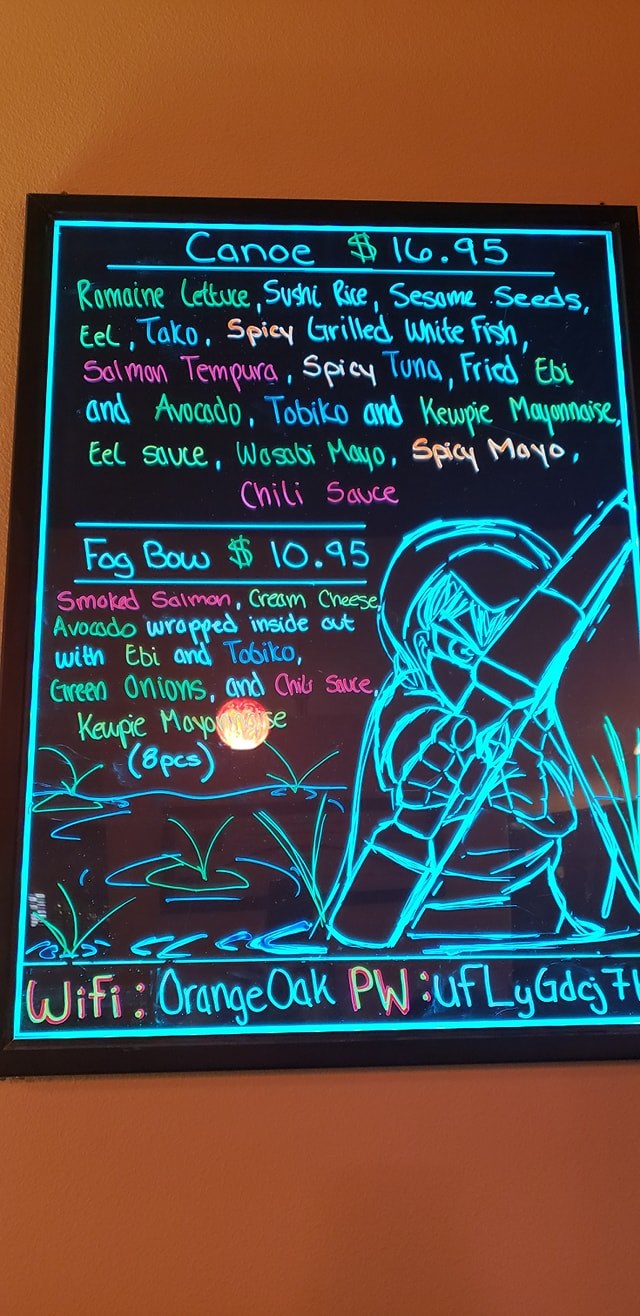 Canoe $ 16.95
Romaine Lettuce, Sushi Rice, Sesame Seeds,
Eel, Tako, Spicy Grilled White Fish,
Salmon Tempura, Spicy Tuna, Fried Ebi
and Avocado, Tobiko and Kewpie Mayonnaise,
Eel sauce, Wasabi Mayo, Spicy Mayo,
Chili Sauce
Fog Bow $ 10.95
Smoked Salmon, Cream Cheese,
Avocado wrapped inside out
with Ebi and Tobiko,
Green Onions, and Chili Sauce,
Kewpie Mayonnaise
(8pcs)
Wifi: OrangeOak PW: